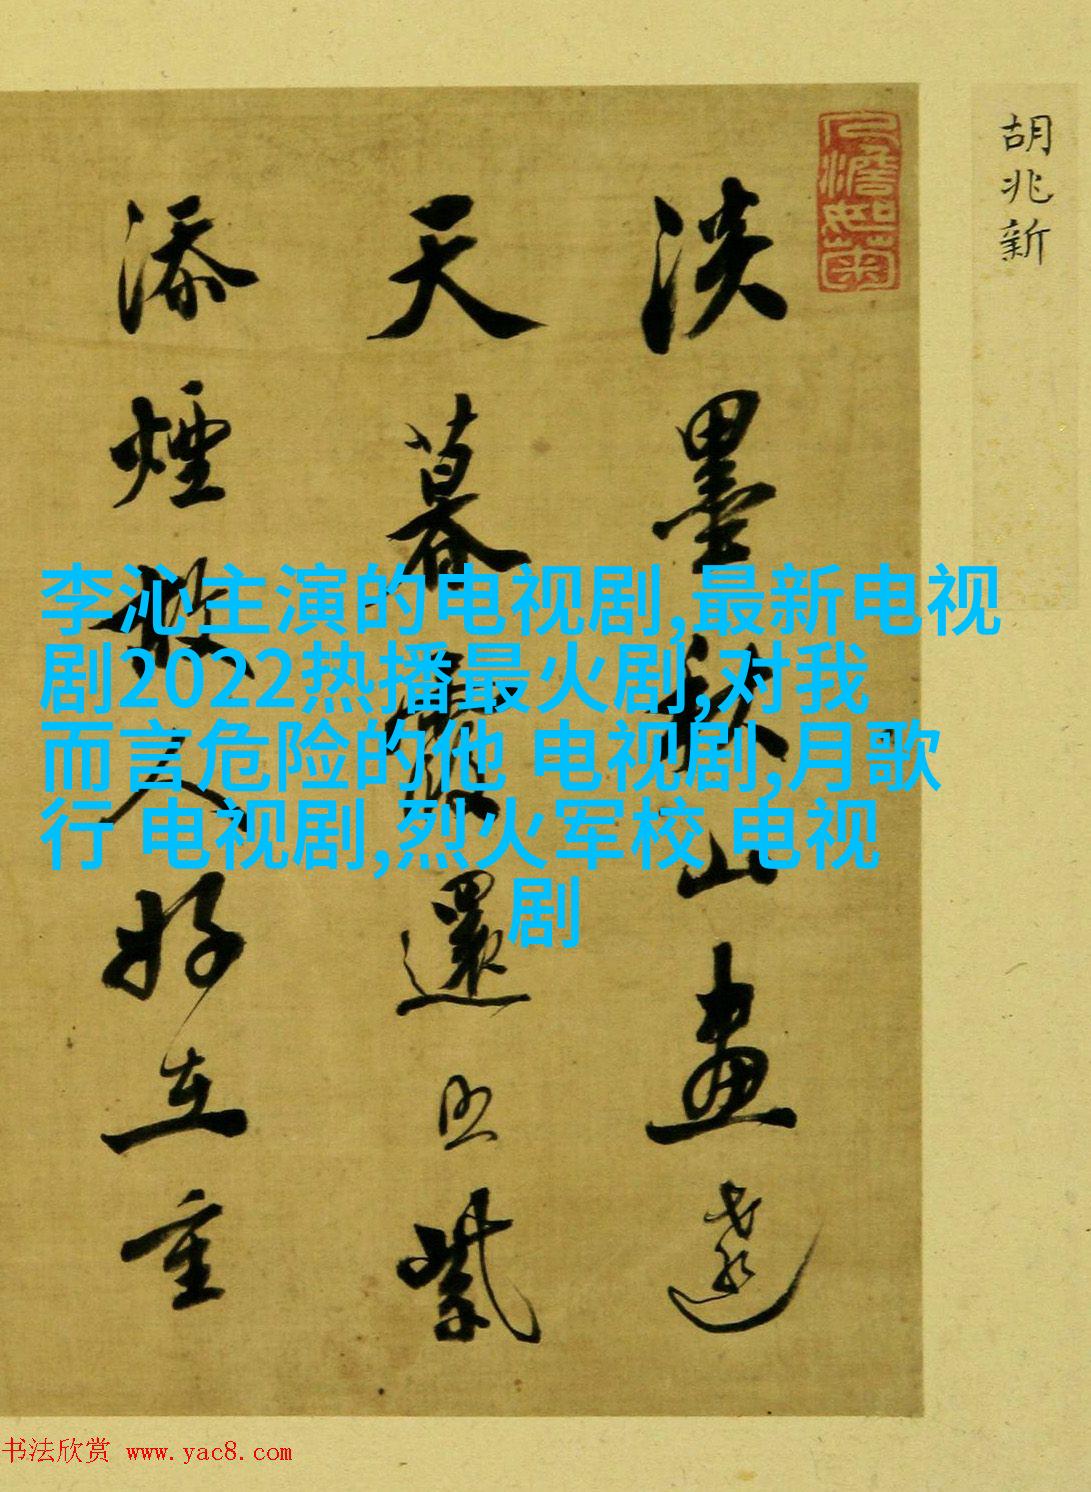 胡兆新
人澹如菊
淡墨秋山畫遠
天暮霞還照紫
添煙故人好在重
李沁主演的电视剧,最新电视
剧2022热播最火剧,对我
而言危险的他 电视剧,月歌
行 电视剧,烈火军校 电视
剧
书法欣赏 www.yac8.com